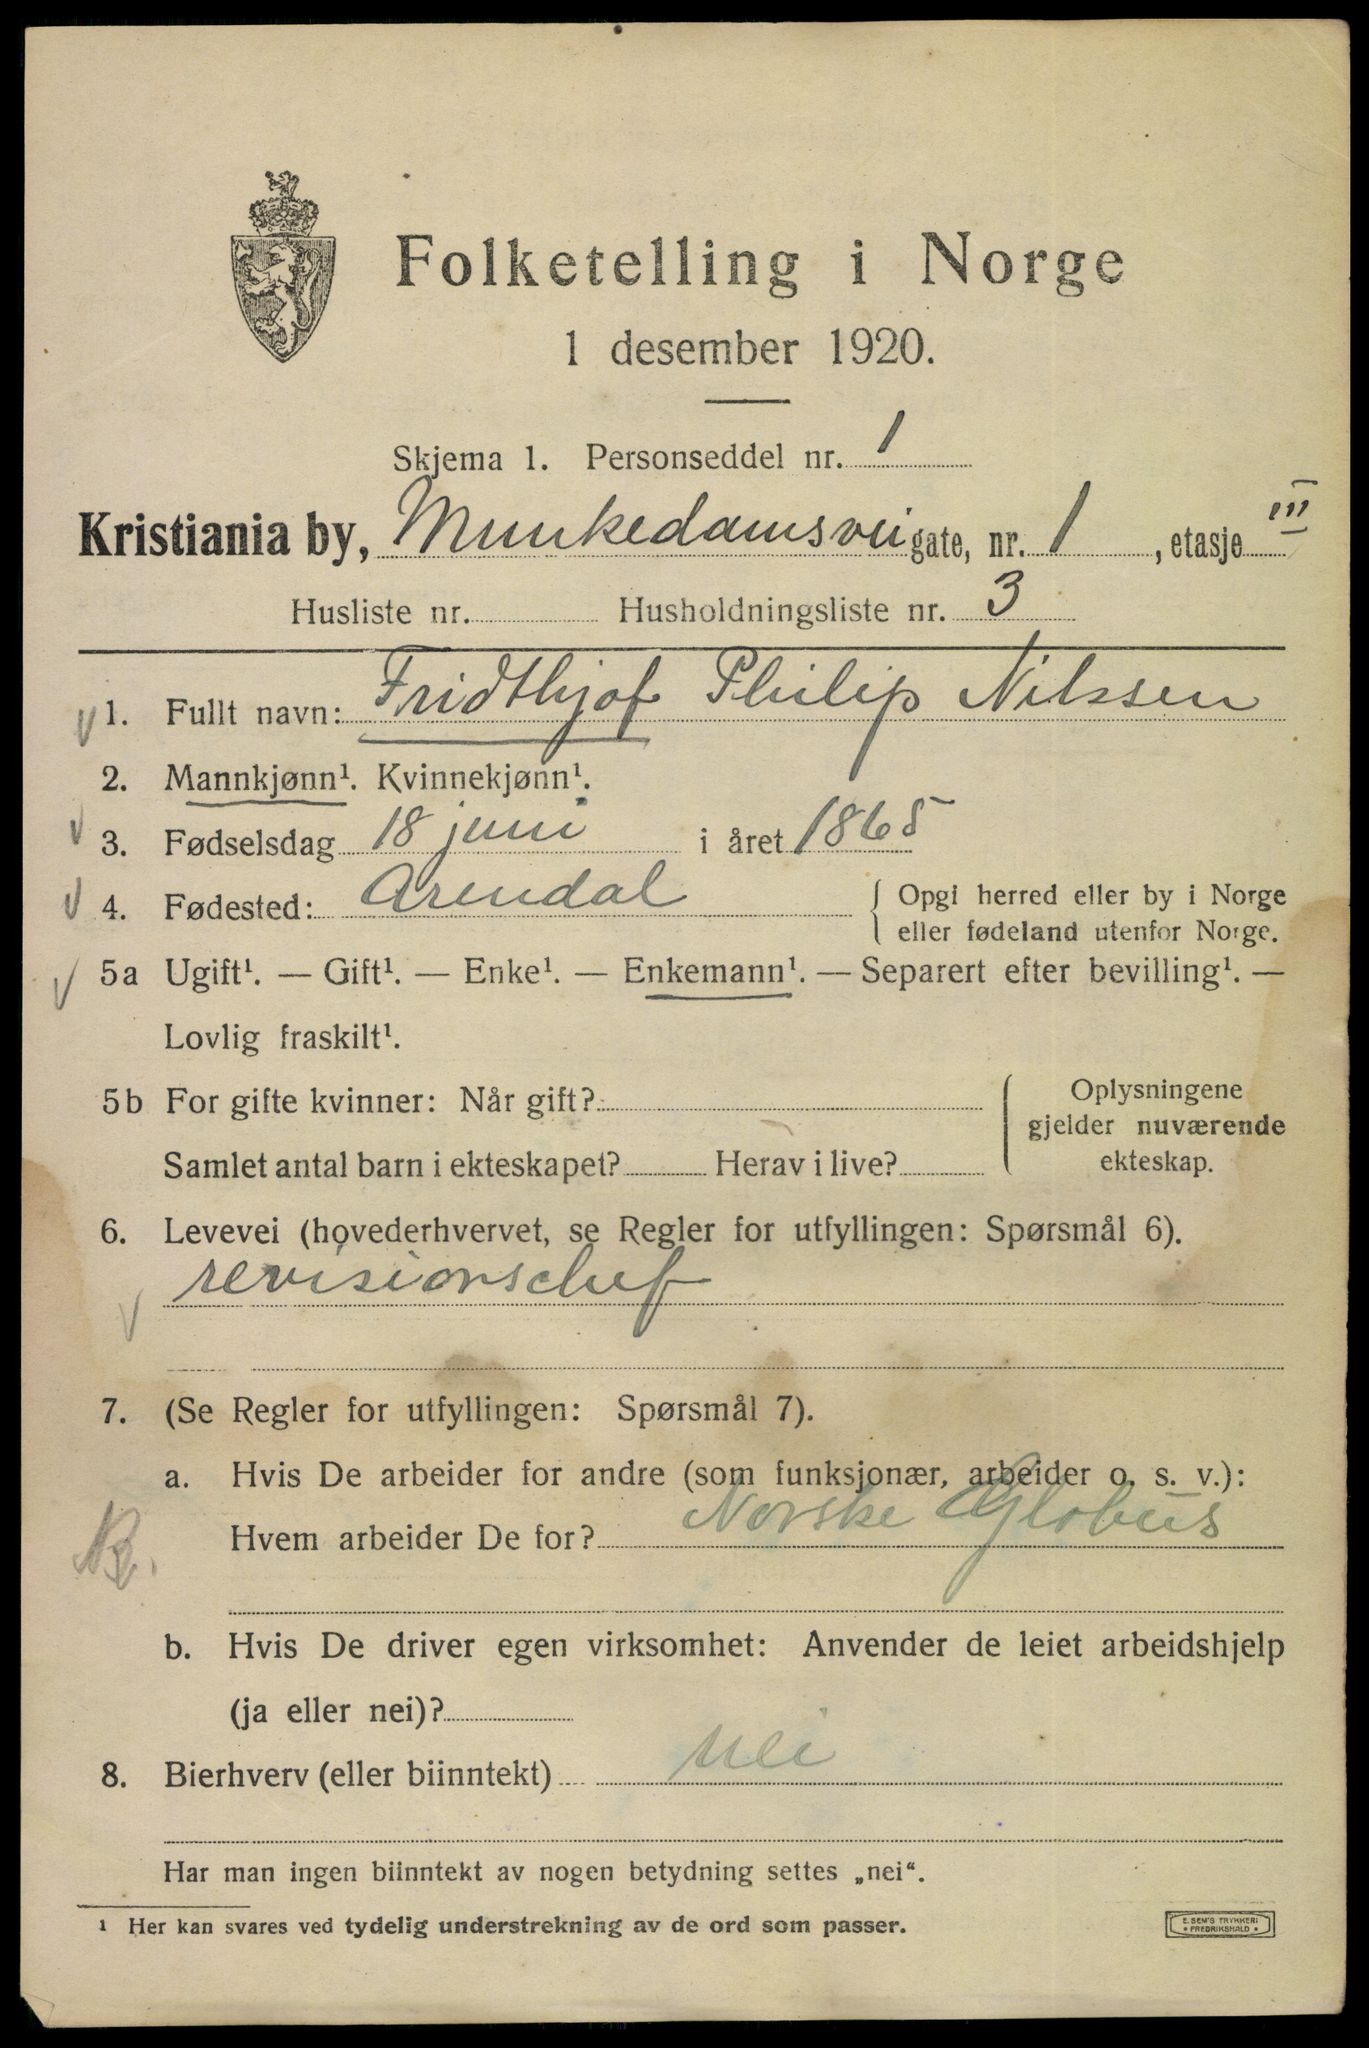 Folketelling i Norge
1 desember 1920.
Skjema 1. Personseddel nr. 1
Kristiania by, Munkedamsvei gate, nr. 1, etasje III
Husliste nr. Husholdningsliste nr. 3
1. Fullt navn: Fridthjof Philip Nilssen
2. Mannkjønn¹. Kvinnekjønn¹.
3. Fødselsdag 18 juni i året 1865
4. Fødested: Arendal { Opgi herred eller by i Norge
eller fødeland utenfor Norge.
5a Ugift¹. — Gift¹. — Enke¹. — Enkemann¹. — Separert efter bevilling¹. —
Lovlig fraskilt¹.
5b For gifte kvinner: Når gift?
Samlet antal barn i ekteskapet? Herav i live?
Oplysningene
gjelder nuværende
ekteskap.
6. Levevei (hovederhvervet, se Regler for utfyllingen: Spørsmål 6).
revisionschef
7. (Se Regler for utfyllingen: Spørsmål 7).
a. Hvis De arbeider for andre (som funksjonær, arbeider o. s. v.):
Hvem arbeider De for? Norske Globus
b. Hvis De driver egen virksomhet: Anvender de leiet arbeidshjelp
(ja eller nei)?
8. Bierhverv (eller biinntekt) nei
Har man ingen biinntekt av nogen betydning settes „nei“.
¹ Her kan svares ved tydelig understrekning av de ord som passer.
E. SEM'S TRYKKERI
• FREDRIKSHALD •